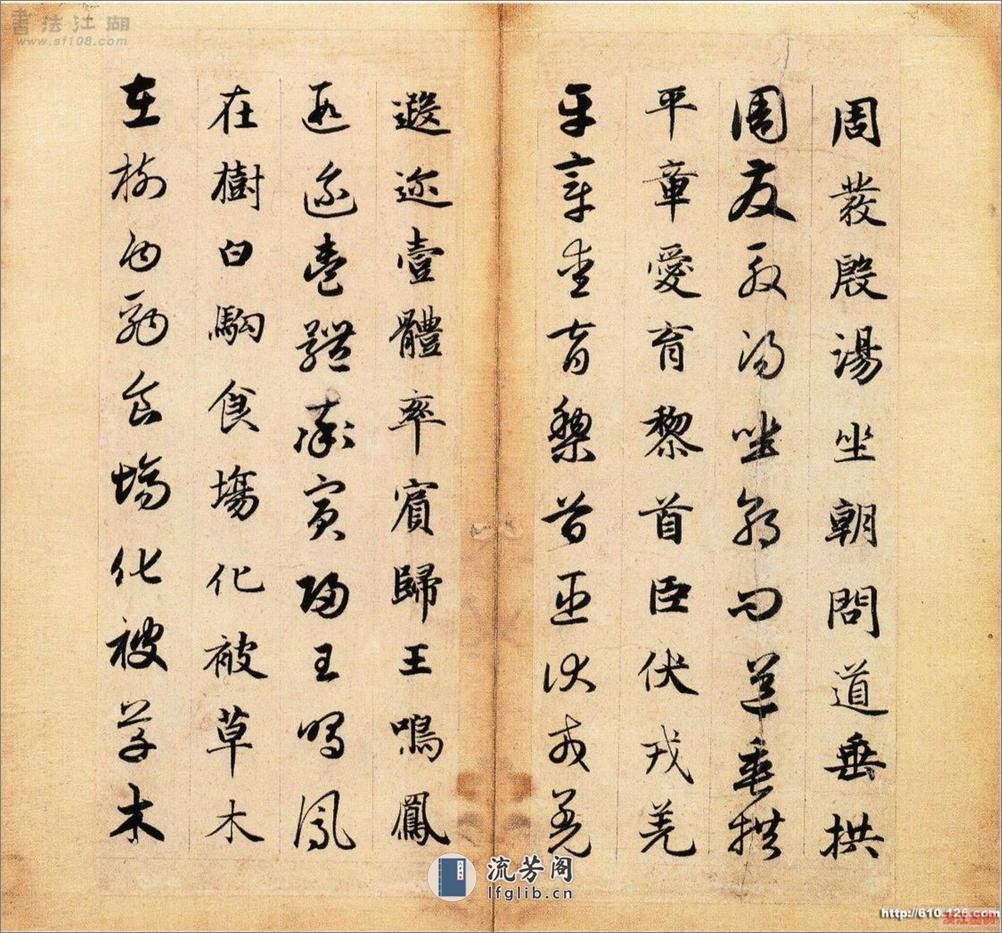 書法江湖
www.sf108.com
周發殷湯坐朝問道垂拱
周發殷湯坐朝問道垂拱
平章愛育黎首臣伏戎羌
平章愛育黎首臣伏戎羌
遐迩壹體率賓歸王鳴鳳
遐迩壹體率賓歸王鳴鳳
在樹白駒食塲化被草木
在樹白駒食塲化被草木
流芳阁
lfglib.cn
http://610.126.com